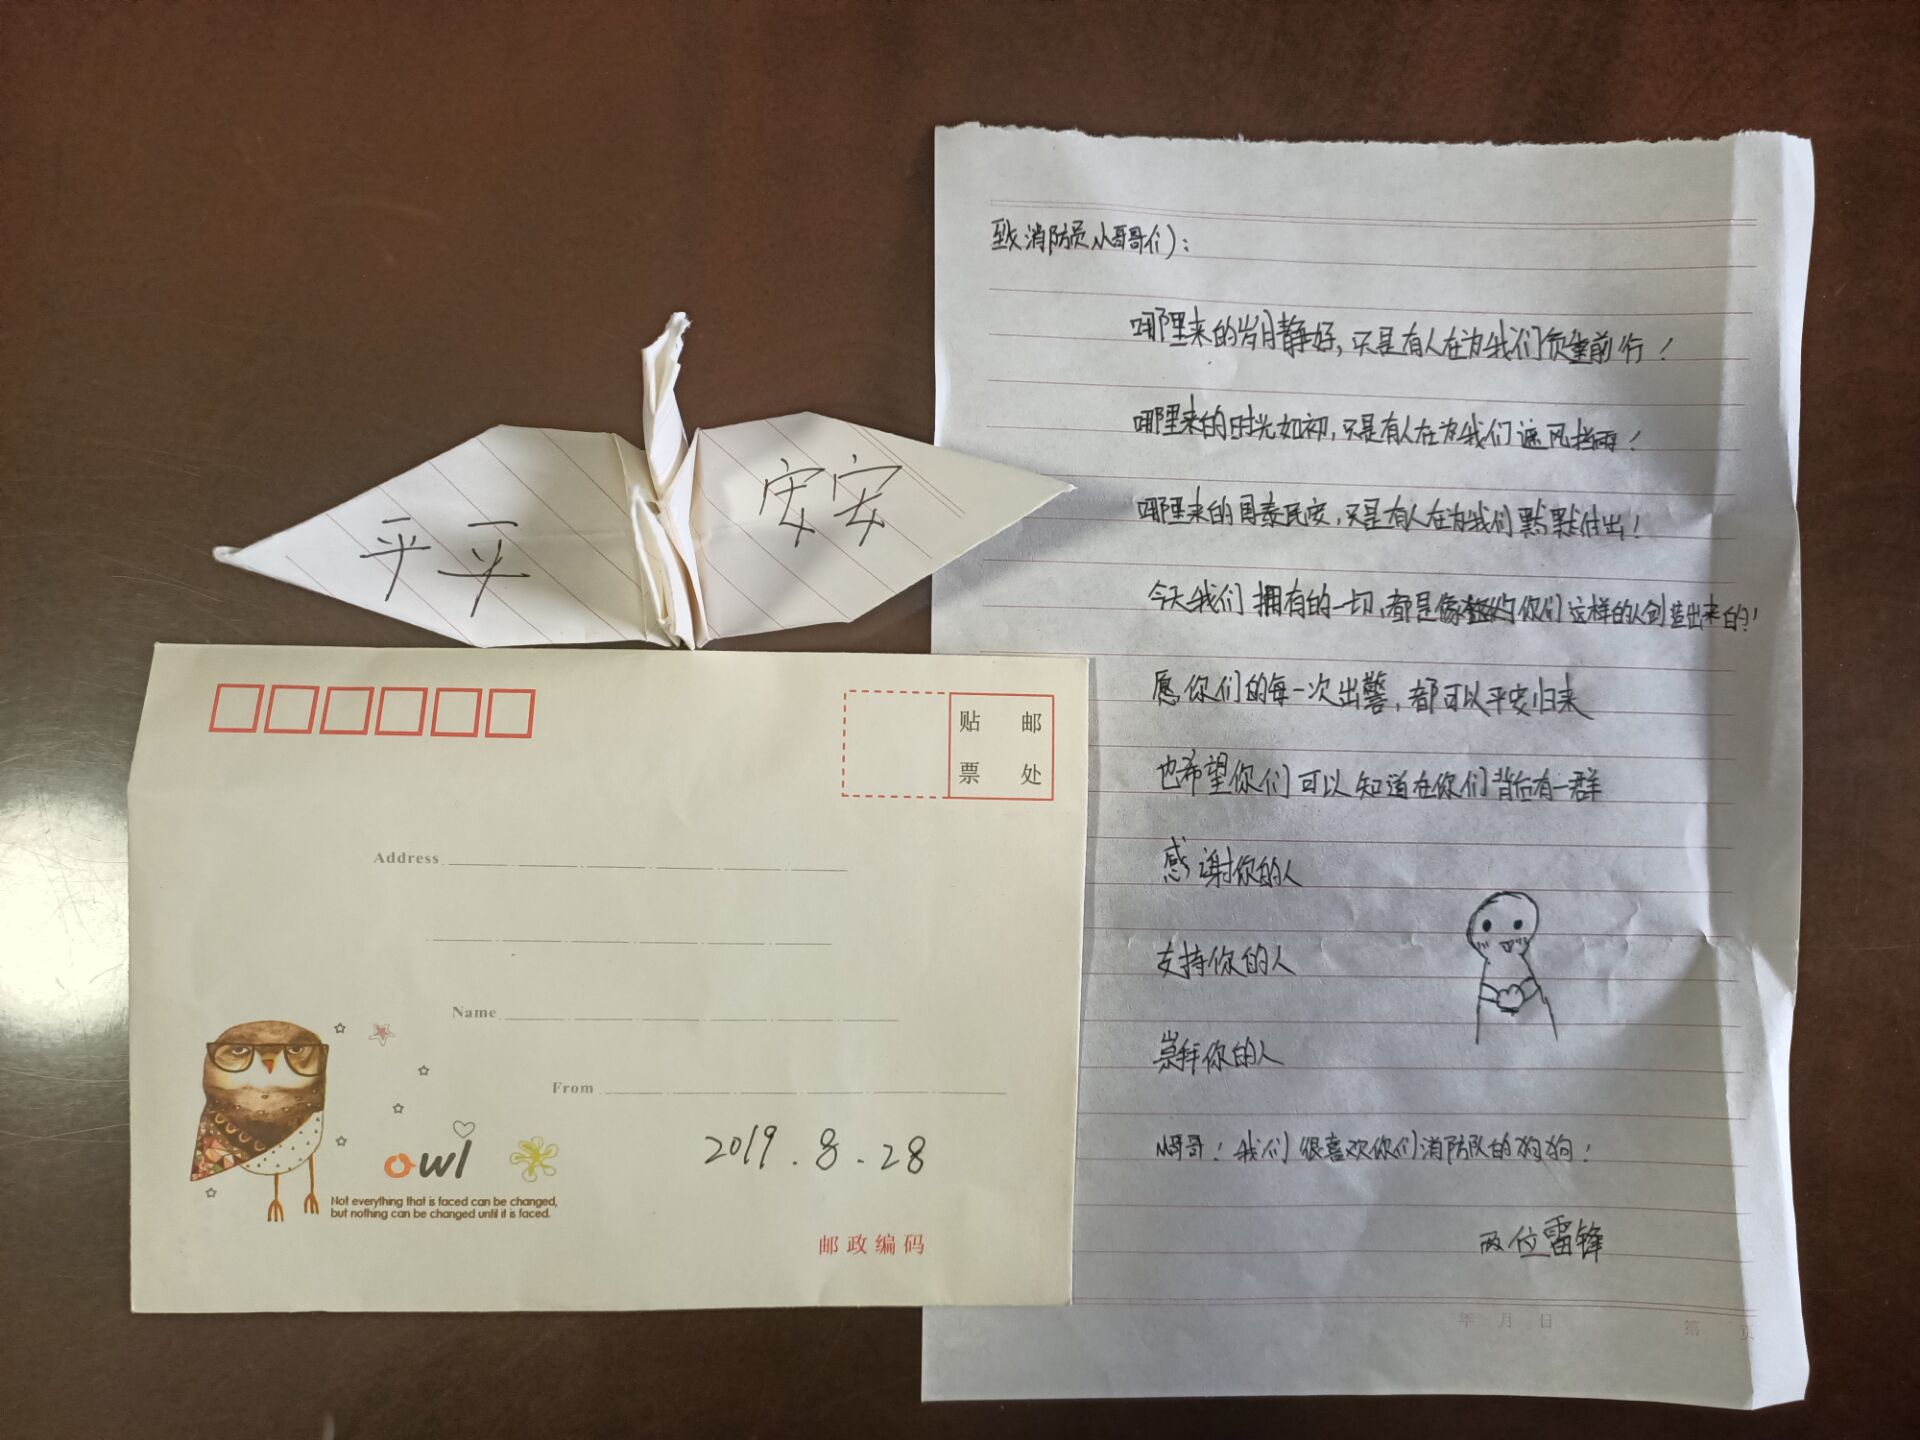 平平
安安
贴 邮
票 处
Address
Name
From
owl
Not everything that is faced can be changed,
but nothing can be changed until it is faced.
2019.8.28
邮政编码
致消防员小哥哥们:
哪里来的岁月静好,只是有人在为我们负重前行!
哪里来的时光如初,只是有人在为我们遮风挡雨!
哪里来的国泰民安,只是有人在为我们默默付出!
今天我们拥有的一切,都是像你们这样的人创造出来的!
愿你们的每一次出警,都可以平安归来
也希望你们可以知道在你们背后有一群
感谢你的人
支持你的人
崇拜你的人
小哥哥!我们很喜欢你们消防队的狗狗!
两位雷锋
年 月 日
第 页